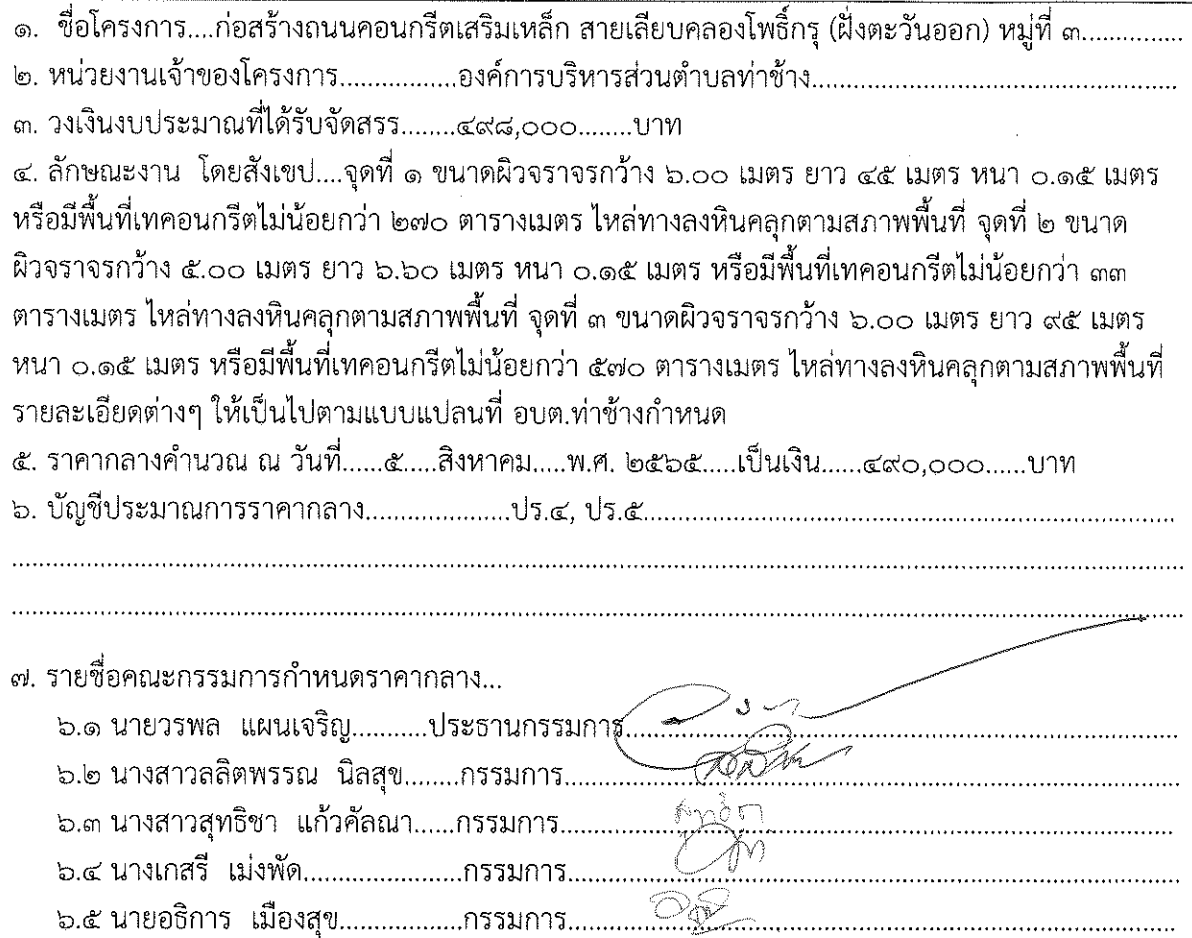 ๑. ชื่อโครงการ....ก่อสร้างถนนคอนกรีตเสริมเหล็ก สายเลียบคลองโพธิ์กรุ (ฝั่งตะวันออก) หมู่ที่ ๓...............
๒. หน่วยงานเจ้าของโครงการ.................องค์การบริหารส่วนตำบลท่าช้าง....................................................
๓. วงเงินงบประมาณที่ได้รับจัดสรร........๔๙๘,๐๐๐........บาท
๔. ลักษณะงาน โดยสังเขป....จุดที่ ๑ ขนาดผิวจราจรกว้าง ๖.๐๐ เมตร ยาว ๔๕ เมตร หนา ๐.๑๕ เมตร
หรือมีพื้นที่เทคอนกรีตไม่น้อยกว่า ๒๗๐ ตารางเมตร ไหล่ทางลงหินคลุกตามสภาพพื้นที่ จุดที่ ๒ ขนาด
ผิวจราจรกว้าง ๕.๐๐ เมตร ยาว ๖.๖๐ เมตร หนา ๐.๑๕ เมตร หรือมีพื้นที่เทคอนกรีตไม่น้อยกว่า ๓๓
ตารางเมตร ไหล่ทางลงหินคลุกตามสภาพพื้นที่ จุดที่ ๓ ขนาดผิวจราจรกว้าง ๖.๐๐ เมตร ยาว ๙๕ เมตร
หนา ๐.๑๕ เมตร หรือมีพื้นที่เทคอนกรีตไม่น้อยกว่า ๕๗๐ ตารางเมตร ไหล่ทางลงหินคลุกตามสภาพพื้นที่
รายละเอียดต่างๆ ให้เป็นไปตามแบบแปลนที่ อบต.ท่าช้างกำหนด
๕. ราคากลางคำนวณ ณ วันที่......๕.....สิงหาคม.....พ.ศ. ๒๕๖๕.....เป็นเงิน......๔๙๐,๐๐๐......บาท
๖. บัญชีประมาณการราคากลาง....................ปร.๔, ปร.๕..........................................................................
๗. รายชื่อคณะกรรมการกำหนดราคากลาง...
๖.๑ นายวรพล แผนเจริญ...........ประธานกรรมการ..........................................................................
๖.๒ นางสาวลลิตพรรณ นิลสุข........กรรมการ..........................................................................
๖.๓ นางสาวสุทธิชา แก้วคัลณา......กรรมการ..........................................................................
๖.๔ นางเกสรี เม่งพัด......................กรรมการ..........................................................................
๖.๕ นายอธิการ เมืองสุข.................กรรมการ..........................................................................